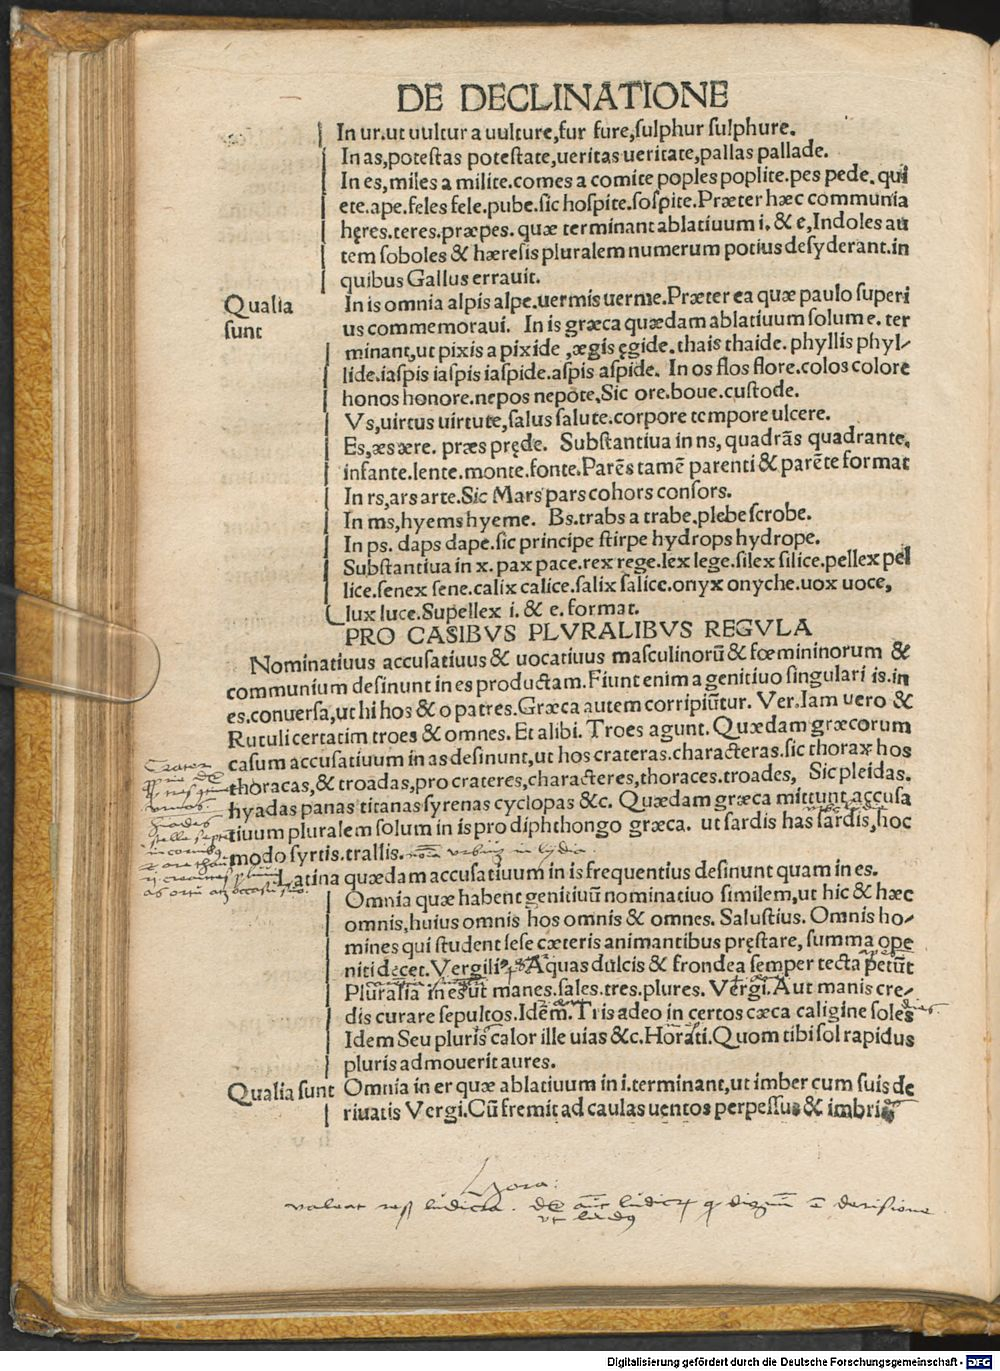 DE DECLINATIONE
In ur.ut uultur a uulture,fur fure,sulphur sulphure.
In as,potestas potestate,ueritas ueritate,pallas pallade.
In es,miles a milite.comes a comite poples poplite.pes pede.qui
ete.ape.feles fele.pube.sic hospite.sospite.Præter hæc communia
hęres.teres.præpes. quæ terminant ablatiuum i. & e,Indoles au
tem soboles & hæresis pluralem numerum potius desyderant.in
quibus Gallus errauit.
Qualia sunt
In is omnia alpis alpe.uermis uerme.Præter ea quæ paulo superi
us commemoraui. In is græca quædam ablatiuum solum e. ter
minant,ut pixis a pixide ,ægis ęgide.thais thaide. phyllis phyl-
lide.iaspis iaspis iaspide.aspis aspide. In os flos flore.colos colore
honos honore.nepos nepote.Sic ore.boue.custode.
Vs,uirtus uirtute,salus salute.corpore tempore ulcere.
Es,æs ære. præs pręde. Substantiua in ns, quadrãs quadrante.
infante.lente.monte.fonte.Parẽs tamẽ parenti & parẽte format
In rs,ars arte.Sic Mars pars cohors consors.
In ms,hyems hyeme. Bs.trabs a trabe.plebe scrobe.
In ps. daps dape.sic principe stirpe hydrops hydrope.
Substantiua in x. pax pace.rex rege.lex lege.silex silice.pellex pel
lice.senex sene.calix calice.salix salice.onyx onyche.uox uoce,
lux luce.Supellex i. & e. format.
PRO CASIBVS PLVRALIBVS REGVLA
Nominatiuus accusatiuus & uocatiuus masculinorũ & fœmininorum &
communium desinunt in es productam.Fiunt enim a genitiuo singulari is.in
es.conuersa,ut hi hos & o patres.Græca autem corripiũtur. Ver.Iam uero &
Rutuli certatim troes & omnes. Et alibi. Troes agunt. Quædam græcorum
casum accusatiuum in as desinunt,ut hos crateras.characteras.sic thorax hos
thoracas,& troadas,pro crateres,characteres,thoraces.troades, Sic pleidas.
hyadas panas titanas syrenas cyclopas &c. Quædam græca mittunt accusa
tiuum pluralem solum in is pro diphthongo græca. ut sardis has sardis,hoc
modo syrtis.trallis.
Latina quædam accusatiuum in is frequentius desinunt quam in es.
Omnia quæ habent genitiuũ nominatiuo similem,ut hic & hæc
omnis,huius omnis hos omnis & omnes. Salustius. Omnis ho-
mines qui student sese cæteris animantibus pręstare, summa ope
niti decet.Vergilius Aquas dulcis & frondea semper tecta petũt
Pluralia in es ut manes.sales.tres.plures. Vergi.Aut manis cre-
dis curare sepultos.Idem.Tris adeo in certos cæca caligine soles
Idem Seu pluris calor ille uias &c.Horati.Quom tibi sol rapidus
pluris admouerit aures.
Qualia sunt
Omnia in er quæ ablatiuum in i.terminant,ut imber cum suis de
riuatis Vergi.Cũ fremit ad caulas uentos perpessus & imbris
Digitalisierung gefördert durch die Deutsche Forschungsgemeinschaft - DFG